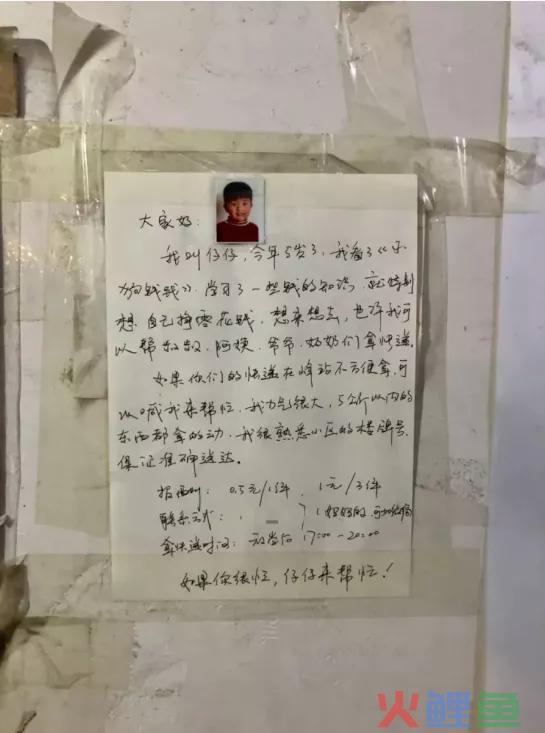 大家好:
我叫仔仔,今年5岁了,我看了《小
狗钱钱》,学习了一些钱的知识,就特别
想自己挣零花钱,想来想去,也许我可
以帮叔叔、阿姨、爷爷、奶奶们拿快递。
如果你们的快递在峰站不方便拿,可
以喊我来帮忙,我力气很大,5公斤以内的
东西都拿的动,我很熟悉小区的楼牌号,
保证准确送达。
报酬: 0.5元/1件,1元/3件
联系方式: (妈妈的,可加微信)
拿快递时间:放学后 17:00-20:00
如果你很忙,仔仔来帮忙!
火鲤鱼